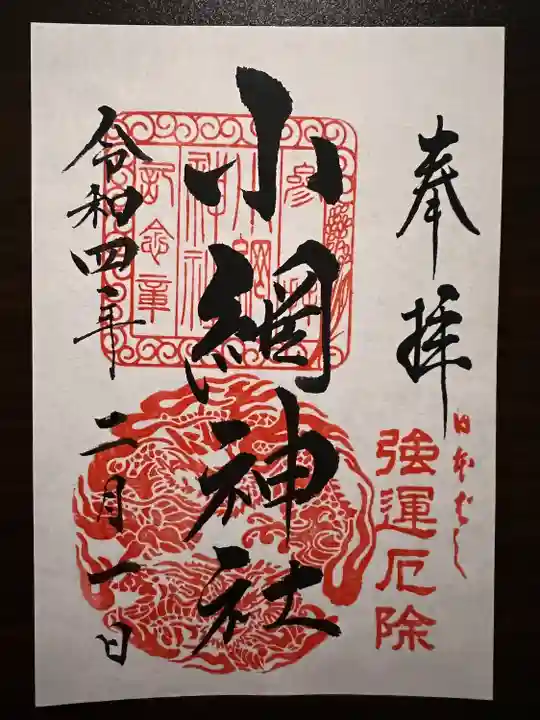 奉拝
日本ばし
強運厄除
小網神社
参拝
小網
神社
記念章
令和四年二月一日